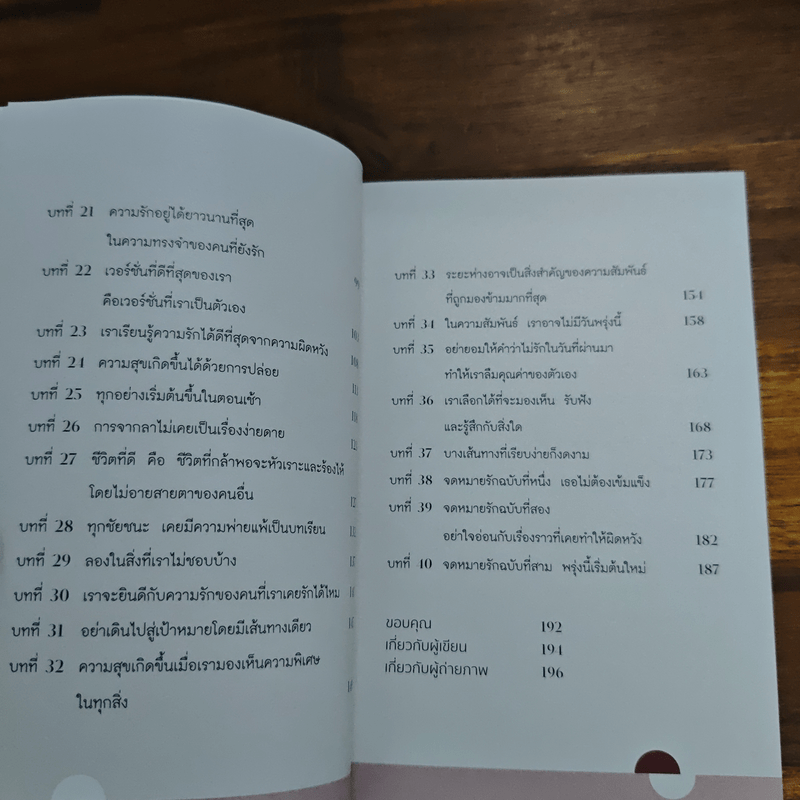 บทที่ 21 ความรักอยู่ได้ยาวนานที่สุด
ในความทรงจำของคนที่ยังรัก
บทที่ 22 เวอร์ชั่นที่ดีที่สุดของเรา
คือเวอร์ชั่นที่เราเป็นตัวเอง
บทที่ 23 เราเรียนรู้ความรักได้ดีที่สุดจากความผิดหวัง
บทที่ 24 ความสุขเกิดขึ้นได้ด้วยการปล่อย
บทที่ 25 ทุกอย่างเริ่มต้นขึ้นในตอนเช้า
บทที่ 26 การจากลาไม่เคยเป็นเรื่องง่ายดาย
บทที่ 27 ชีวิตที่ดี คือ ชีวิตที่กล้าพอจะหัวเราะและร้องไห้
โดยไม่อายสายตาของคนอื่น
บทที่ 28 ทุกชัยชนะ เคยมีความพ่ายแพ้เป็นบทเรียน
บทที่ 29 ลองในสิ่งที่เราไม่ชอบบ้าง
บทที่ 30 เราจะยินดีกับความรักของคนที่เราเคยรักได้ไหม
บทที่ 31 อย่าเดินไปสู่เป้าหมายโดยมีเส้นทางเดียว
บทที่ 32 ความสุขเกิดขึ้นเมื่อเรามองเห็นความพิเศษ
ในทุกสิ่ง
บทที่ 33 ระยะห่างอาจเป็นสิ่งสำคัญของความสัมพันธ์
ที่ถูกมองข้ามมากที่สุด 154
บทที่ 34 ในความสัมพันธ์ เราอาจไม่มีวันพรุ่งนี้ 158
บทที่ 35 อย่ายอมให้คำว่าไม่รักในวันที่ผ่านมา
ทำให้เราลืมคุณค่าของตัวเอง 163
บทที่ 36 เราเลือกได้ที่จะมองเห็น รับฟัง
และรู้สึกกับสิ่งใด 168
บทที่ 37 บางเส้นทางที่เรียบง่ายก็งดงาม 173
บทที่ 38 จดหมายรักฉบับที่หนึ่ง เธอไม่ต้องเข้มแข็ง 177
บทที่ 39 จดหมายรักฉบับที่สอง
อย่าใจอ่อนกับเรื่องราวที่เคยทำให้ผิดหวัง 182
บทที่ 40 จดหมายรักฉบับที่สาม พรุ่งนี้เริ่มต้นใหม่ 187
ขอบคุณ 192
เกี่ยวกับผู้เขียน 194
เกี่ยวกับผู้ถ่ายภาพ 196